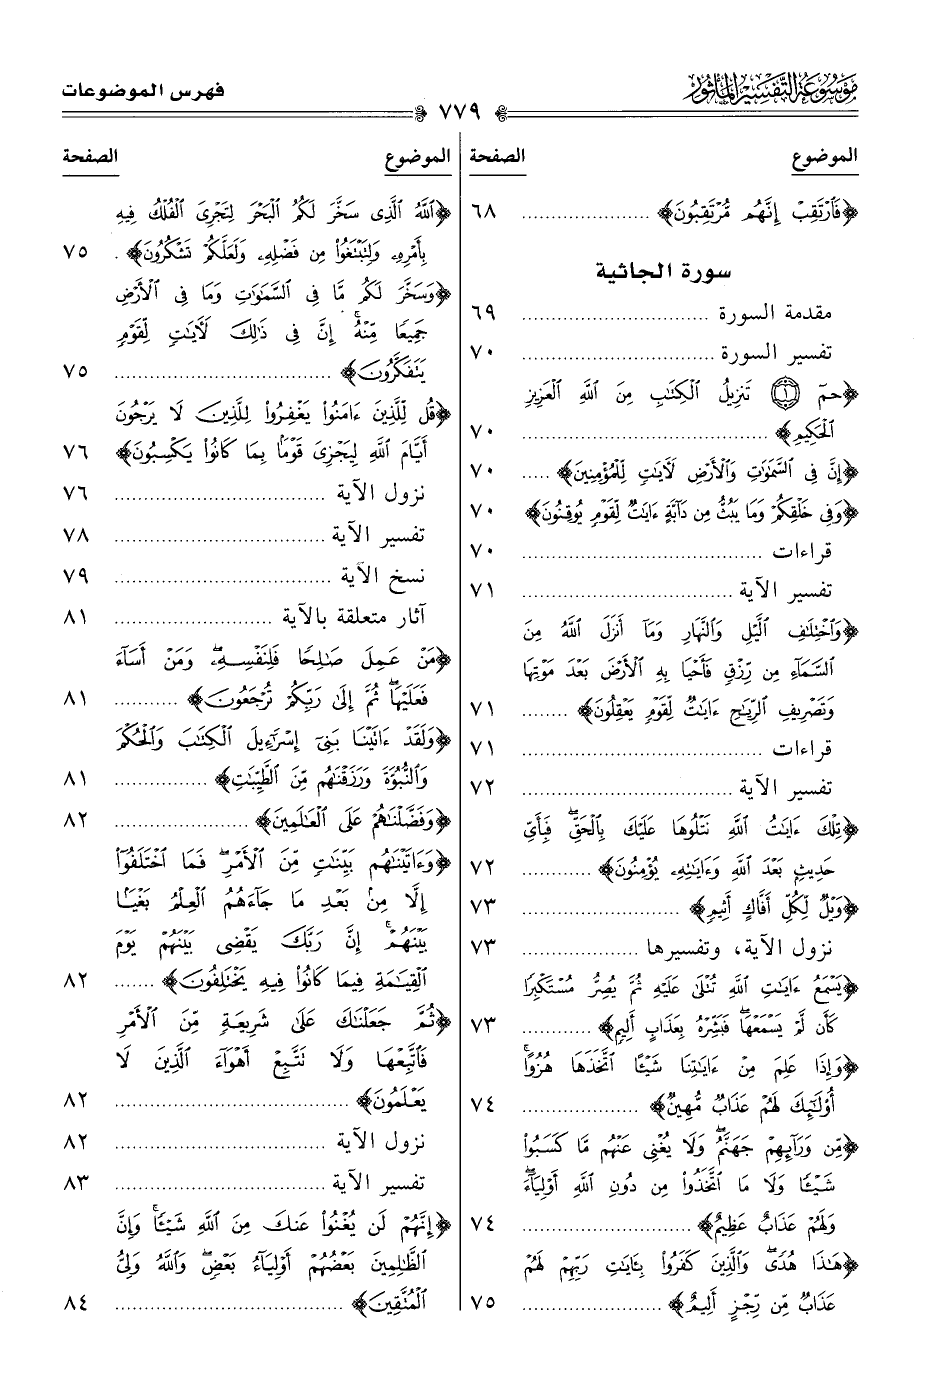 موسوعة التفسير المأثور
فهرس الموضوعات
٧٧٩
الموضوع الصفحة
﴿فَٱرْتَقِبْ إِنَّهُم مُّرْتَقِبُونَ﴾ ..................... ٦٨
سورة الجاثية
مقدمة السورة ............................... ٦٩
تفسير السورة ................................ ٧٠
﴿حمٓ ۝١ تَنزِيلُ ٱلْكِتَٰبِ مِنَ ٱللَّهِ ٱلْعَزِيزِ
ٱلْحَكِيمِ﴾ ......................................... ٧٠
﴿إِنَّ فِى ٱلسَّمَٰوَٰتِ وَٱلْأَرْضِ لَءَايَٰتٍ لِّلْمُؤْمِنِينَ﴾ ..... ٧٠
﴿وَفِى خَلْقِكُمْ وَمَا يَبُثُّ مِن دَآبَّةٍ ءَايَٰتٌ لِّقَوْمٍ يُوقِنُونَ﴾ ٧٠
قراءات ........................................ ٧٠
تفسير الآية ................................... ٧١
﴿وَٱخْتِلَٰفِ ٱلَّيْلِ وَٱلنَّهَارِ وَمَآ أَنزَلَ ٱللَّهُ مِنَ
ٱلسَّمَآءِ مِن رِّزْقٍ فَأَحْيَا بِهِ ٱلْأَرْضَ بَعْدَ مَوْتِهَا
وَتَصْرِيفِ ٱلرِّيَٰحِ ءَايَٰتٌ لِّقَوْمٍ يَعْقِلُونَ﴾ ........ ٧١
قراءات ........................................ ٧١
تفسير الآية ................................... ٧٢
﴿تِلْكَ ءَايَٰتُ ٱللَّهِ نَتْلُوهَا عَلَيْكَ بِٱلْحَقِّ ۖ فَبِأَىِّ
حَدِيثٍۭ بَعْدَ ٱللَّهِ وَءَايَٰتِهِۦ يُؤْمِنُونَ﴾ ............ ٧٢
﴿وَيْلٌ لِّكُلِّ أَفَّاكٍ أَثِيمٍ﴾ .......................... ٧٣
نزول الآية، وتفسيرها .................... ٧٣
﴿يَسْمَعُ ءَايَٰتِ ٱللَّهِ تُتْلَىٰ عَلَيْهِ ثُمَّ يُصِرُّ مُسْتَكْبِرًا
كَأَن لَّمْ يَسْمَعْهَا ۖ فَبَشِّرْهُ بِعَذَابٍ أَلِيمٍ﴾ ............ ٧٣
﴿وَإِذَا عَلِمَ مِنْ ءَايَٰتِنَا شَيْـًٔا ٱتَّخَذَهَا هُزُوًا ۚ
أُو۟لَٰٓئِكَ لَهُمْ عَذَابٌ مُّهِينٌ﴾ ................... ٧٤
﴿مِّن وَرَآئِهِمْ جَهَنَّمُ ۖ وَلَا يُغْنِى عَنْهُم مَّا كَسَبُوا۟
شَيْـًٔا وَلَا مَا ٱتَّخَذُوا۟ مِن دُونِ ٱللَّهِ أَوْلِيَآءَ ۖ
وَلَهُمْ عَذَابٌ عَظِيمٌ﴾ ............................ ٧٤
﴿هَٰذَا هُدًى ۖ وَٱلَّذِينَ كَفَرُوا۟ بِـَٔايَٰتِ رَبِّهِمْ لَهُمْ
عَذَابٌ مِّن رِّجْزٍ أَلِيمٌ﴾ ....................... ٧٥
الموضوع الصفحة
﴿ٱللَّهُ ٱلَّذِى سَخَّرَ لَكُمُ ٱلْبَحْرَ لِتَجْرِىَ ٱلْفُلْكُ فِيهِ
بِأَمْرِهِۦ وَلِتَبْتَغُوا۟ مِن فَضْلِهِۦ وَلَعَلَّكُمْ تَشْكُرُونَ﴾ . ٧٥
﴿وَسَخَّرَ لَكُم مَّا فِى ٱلسَّمَٰوَٰتِ وَمَا فِى ٱلْأَرْضِ
جَمِيعًا مِّنْهُ ۚ إِنَّ فِى ذَٰلِكَ لَءَايَٰتٍ لِّقَوْمٍ
يَتَفَكَّرُونَ﴾ ..................................... ٧٥
﴿قُل لِّلَّذِينَ ءَامَنُوا۟ يَغْفِرُوا۟ لِلَّذِينَ لَا يَرْجُونَ
أَيَّامَ ٱللَّهِ لِيَجْزِىَ قَوْمًۢا بِمَا كَانُوا۟ يَكْسِبُونَ﴾ ٧٦
نزول الآية ................................... ٧٦
تفسير الآية ................................... ٧٨
نسخ الآية .................................... ٧٩
آثار متعلقة بالآية .......................... ٨١
﴿مَنْ عَمِلَ صَٰلِحًا فَلِنَفْسِهِۦ ۖ وَمَنْ أَسَآءَ
فَعَلَيْهَا ۖ ثُمَّ إِلَىٰ رَبِّكُمْ تُرْجَعُونَ﴾ ........... ٨١
﴿وَلَقَدْ ءَاتَيْنَا بَنِىٓ إِسْرَٰٓءِيلَ ٱلْكِتَٰبَ وَٱلْحُكْمَ
وَٱلنُّبُوَّةَ وَرَزَقْنَٰهُم مِّنَ ٱلطَّيِّبَٰتِ﴾ ............... ٨١
﴿وَفَضَّلْنَٰهُمْ عَلَى ٱلْعَٰلَمِينَ﴾ ...................... ٨٢
﴿وَءَاتَيْنَٰهُم بَيِّنَٰتٍ مِّنَ ٱلْأَمْرِ ۖ فَمَا ٱخْتَلَفُوٓا۟
إِلَّا مِنۢ بَعْدِ مَا جَآءَهُمُ ٱلْعِلْمُ بَغْيًۢا
بَيْنَهُمْ ۚ إِنَّ رَبَّكَ يَقْضِى بَيْنَهُمْ يَوْمَ
ٱلْقِيَٰمَةِ فِيمَا كَانُوا۟ فِيهِ يَخْتَلِفُونَ﴾ ....... ٨٢
﴿ثُمَّ جَعَلْنَٰكَ عَلَىٰ شَرِيعَةٍ مِّنَ ٱلْأَمْرِ
فَٱتَّبِعْهَا وَلَا تَتَّبِعْ أَهْوَآءَ ٱلَّذِينَ لَا
يَعْلَمُونَ﴾ ....................................... ٨٢
نزول الآية ................................... ٨٢
تفسير الآية ................................... ٨٣
﴿إِنَّهُمْ لَن يُغْنُوا۟ عَنكَ مِنَ ٱللَّهِ شَيْـًٔا ۚ وَإِنَّ
ٱلظَّٰلِمِينَ بَعْضُهُمْ أَوْلِيَآءُ بَعْضٍ ۖ وَٱللَّهُ وَلِىُّ
ٱلْمُتَّقِينَ﴾ ..................................... ٨٤